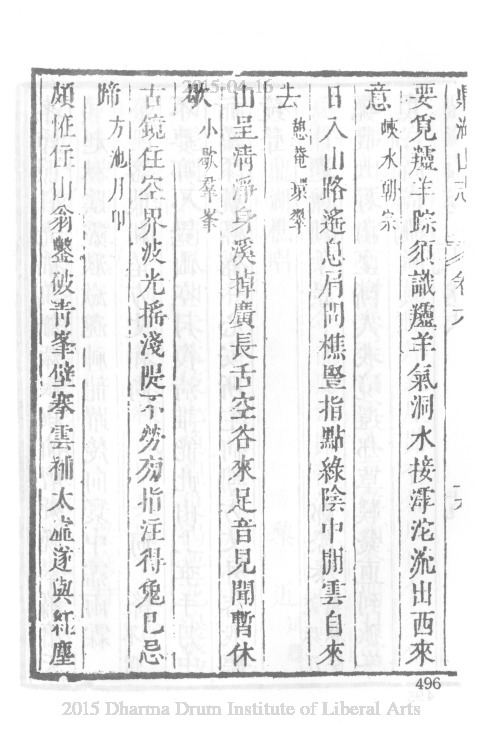 2015-04-16
鼎湖山志
要覓麤羊踪須識麤羊氣洞水接滹沱流出西來
意 峽水朝宗
日入山路遙息肩問樵豎指點綠陰中閒雲自來
去 憩菴環翠
山呈清淨身溪掉廣長舌空谷來足音見聞暫休
歇 小歇羣峯
古鏡住空界波光搖淺隄不勞旁指注得兔已忌
蹄 方池月印
頗怪住山翁鑿破青峯壁搴雲補太虛遂與紅塵
496
2015 Dharma Drum Institute of Liberal Arts